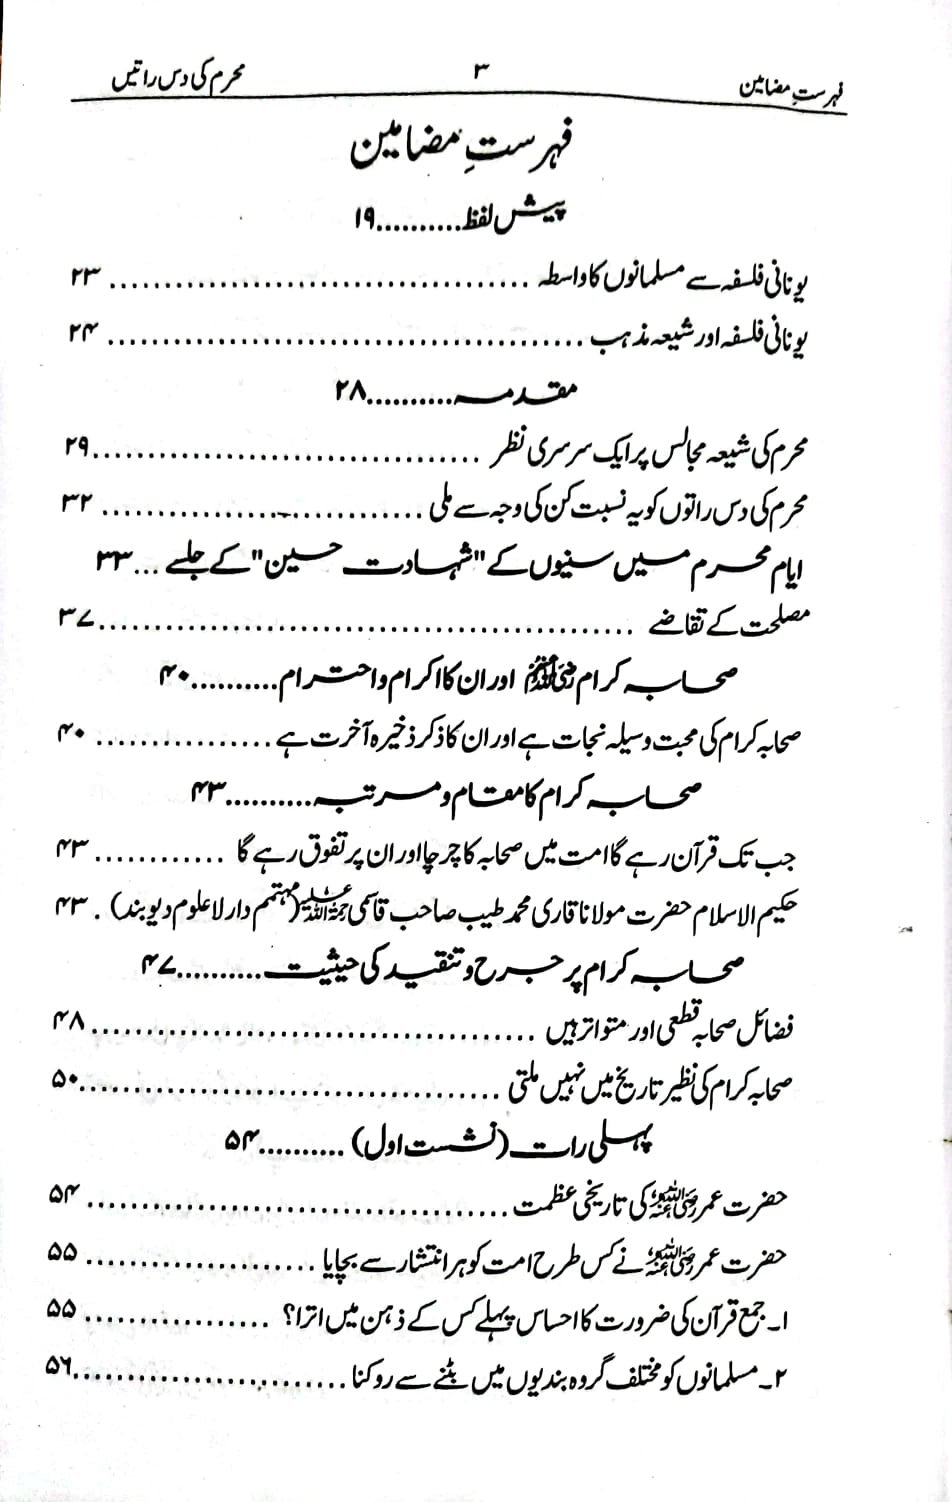 فہرستِ مضامین ۳ محرم کی دس راتیں
فہرستِ مضامین
پیش لفظ..........۱۹
یونانی فلسفہ سے مسلمانوں کا واسطہ ...................................... ۲۳
یونانی فلسفہ اور شیعہ مذہب ........................................... ۲۴
مقدمہ..........۲۸
محرم کی شیعہ مجالس پر ایک سرسری نظر ...................................۲۹
محرم کی دس راتوں کو یہ نسبت کن کی وجہ سے ملی ............................. ۳۲
ایام محرم میں سنیوں کے "شہادت حسین" کے جلسے ... ۳۳
مصلحت کے تقاضے ................................................۳۷
صحابہ کرام رضی اللہ عنہم اور ان کا اکرام و احترام..........۴۰
صحابہ کرام کی محبت وسیلہ نجات ہے اور ان کا ذکر ذخیرہ آخرت ہے ................ ۴۰
صحابہ کرام کا مقام و مرتبہ..........۴۳
جب تک قرآن رہے گا امت میں صحابہ کا چرچا اور ان پر تفوق رہے گا ............ ۴۳
حکیم الاسلام حضرت مولانا قاری محمد طیب صاحب قاسمی رحمۃ اللہ علیہ (مہتمم دارلاعلوم دیوبند) . ۴۳
صحابہ کرام پر جرح و تنقید کی حیثیت..........۴۷
فضائل صحابہ قطعی اور متواتر ہیں ........................................ ۴۸
صحابہ کرام کی نظیر تاریخ میں نہیں ملتی ......................................۵۰
پہلی رات (نشست اول) ..........۵۴
حضرت عمر رضی اللہ عنہ کی تاریخی عظمت ...................................... ۵۴
حضرت عمر رضی اللہ عنہ نے کس طرح امت کو ہر انتشار سے بچایا ..................... ۵۵
۱۔ جمع قرآن کی ضرورت کا احساس پہلے کس کے ذہن میں اترا؟ ................. ۵۵
۲۔ مسلمانوں کو مختلف گروہ بندیوں میں بٹنے سے روکنا.........................۵۶